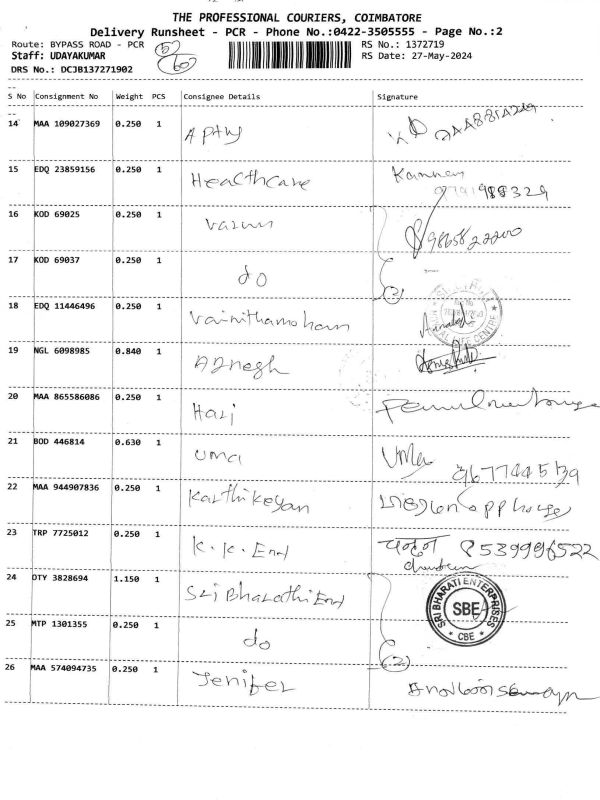 THE PROFESSIONAL COURIERS, COIMBATORE
Delivery Runsheet - PCR - Phone No.:0422-3505555 - Page No.:2
Route: BYPASS ROAD - PCR
RS No.: 1372719
Staff: UDAYAKUMAR
RS Date: 27-May-2024
DRS No.: DCJB137271902
60
S No Consignment No Weight PCS Consignee Details Signature
14 MAA 109027369 0.250 1
15 EDQ 23859156 0.250 1 Healthcare
16 KOD 69025 0.250 1 Varun 9865822200
17 KOD 69037 0.250 1 do (2)
18 EDQ 11446496 0.250 1 Vainithamohan
19 NGL 6098985 0.840 1
20 MAA 865586086 0.250 1 Hari
21 BOD 446814 0.630 1 uma UMa
22 MAA 944907836 0.250 1 Karthikeyan
23 TRP 7725012 0.250 1 K.K. Ent 8539996522
24 DTY 3828694 1.150 1 Sri Bharathi Ent
SRI BHARATI ENTERPRISES
SBE
* CBE *
25 MTP 1301355 0.250 1 do (2)
26 MAA 574094735 0.250 1 Jenifer